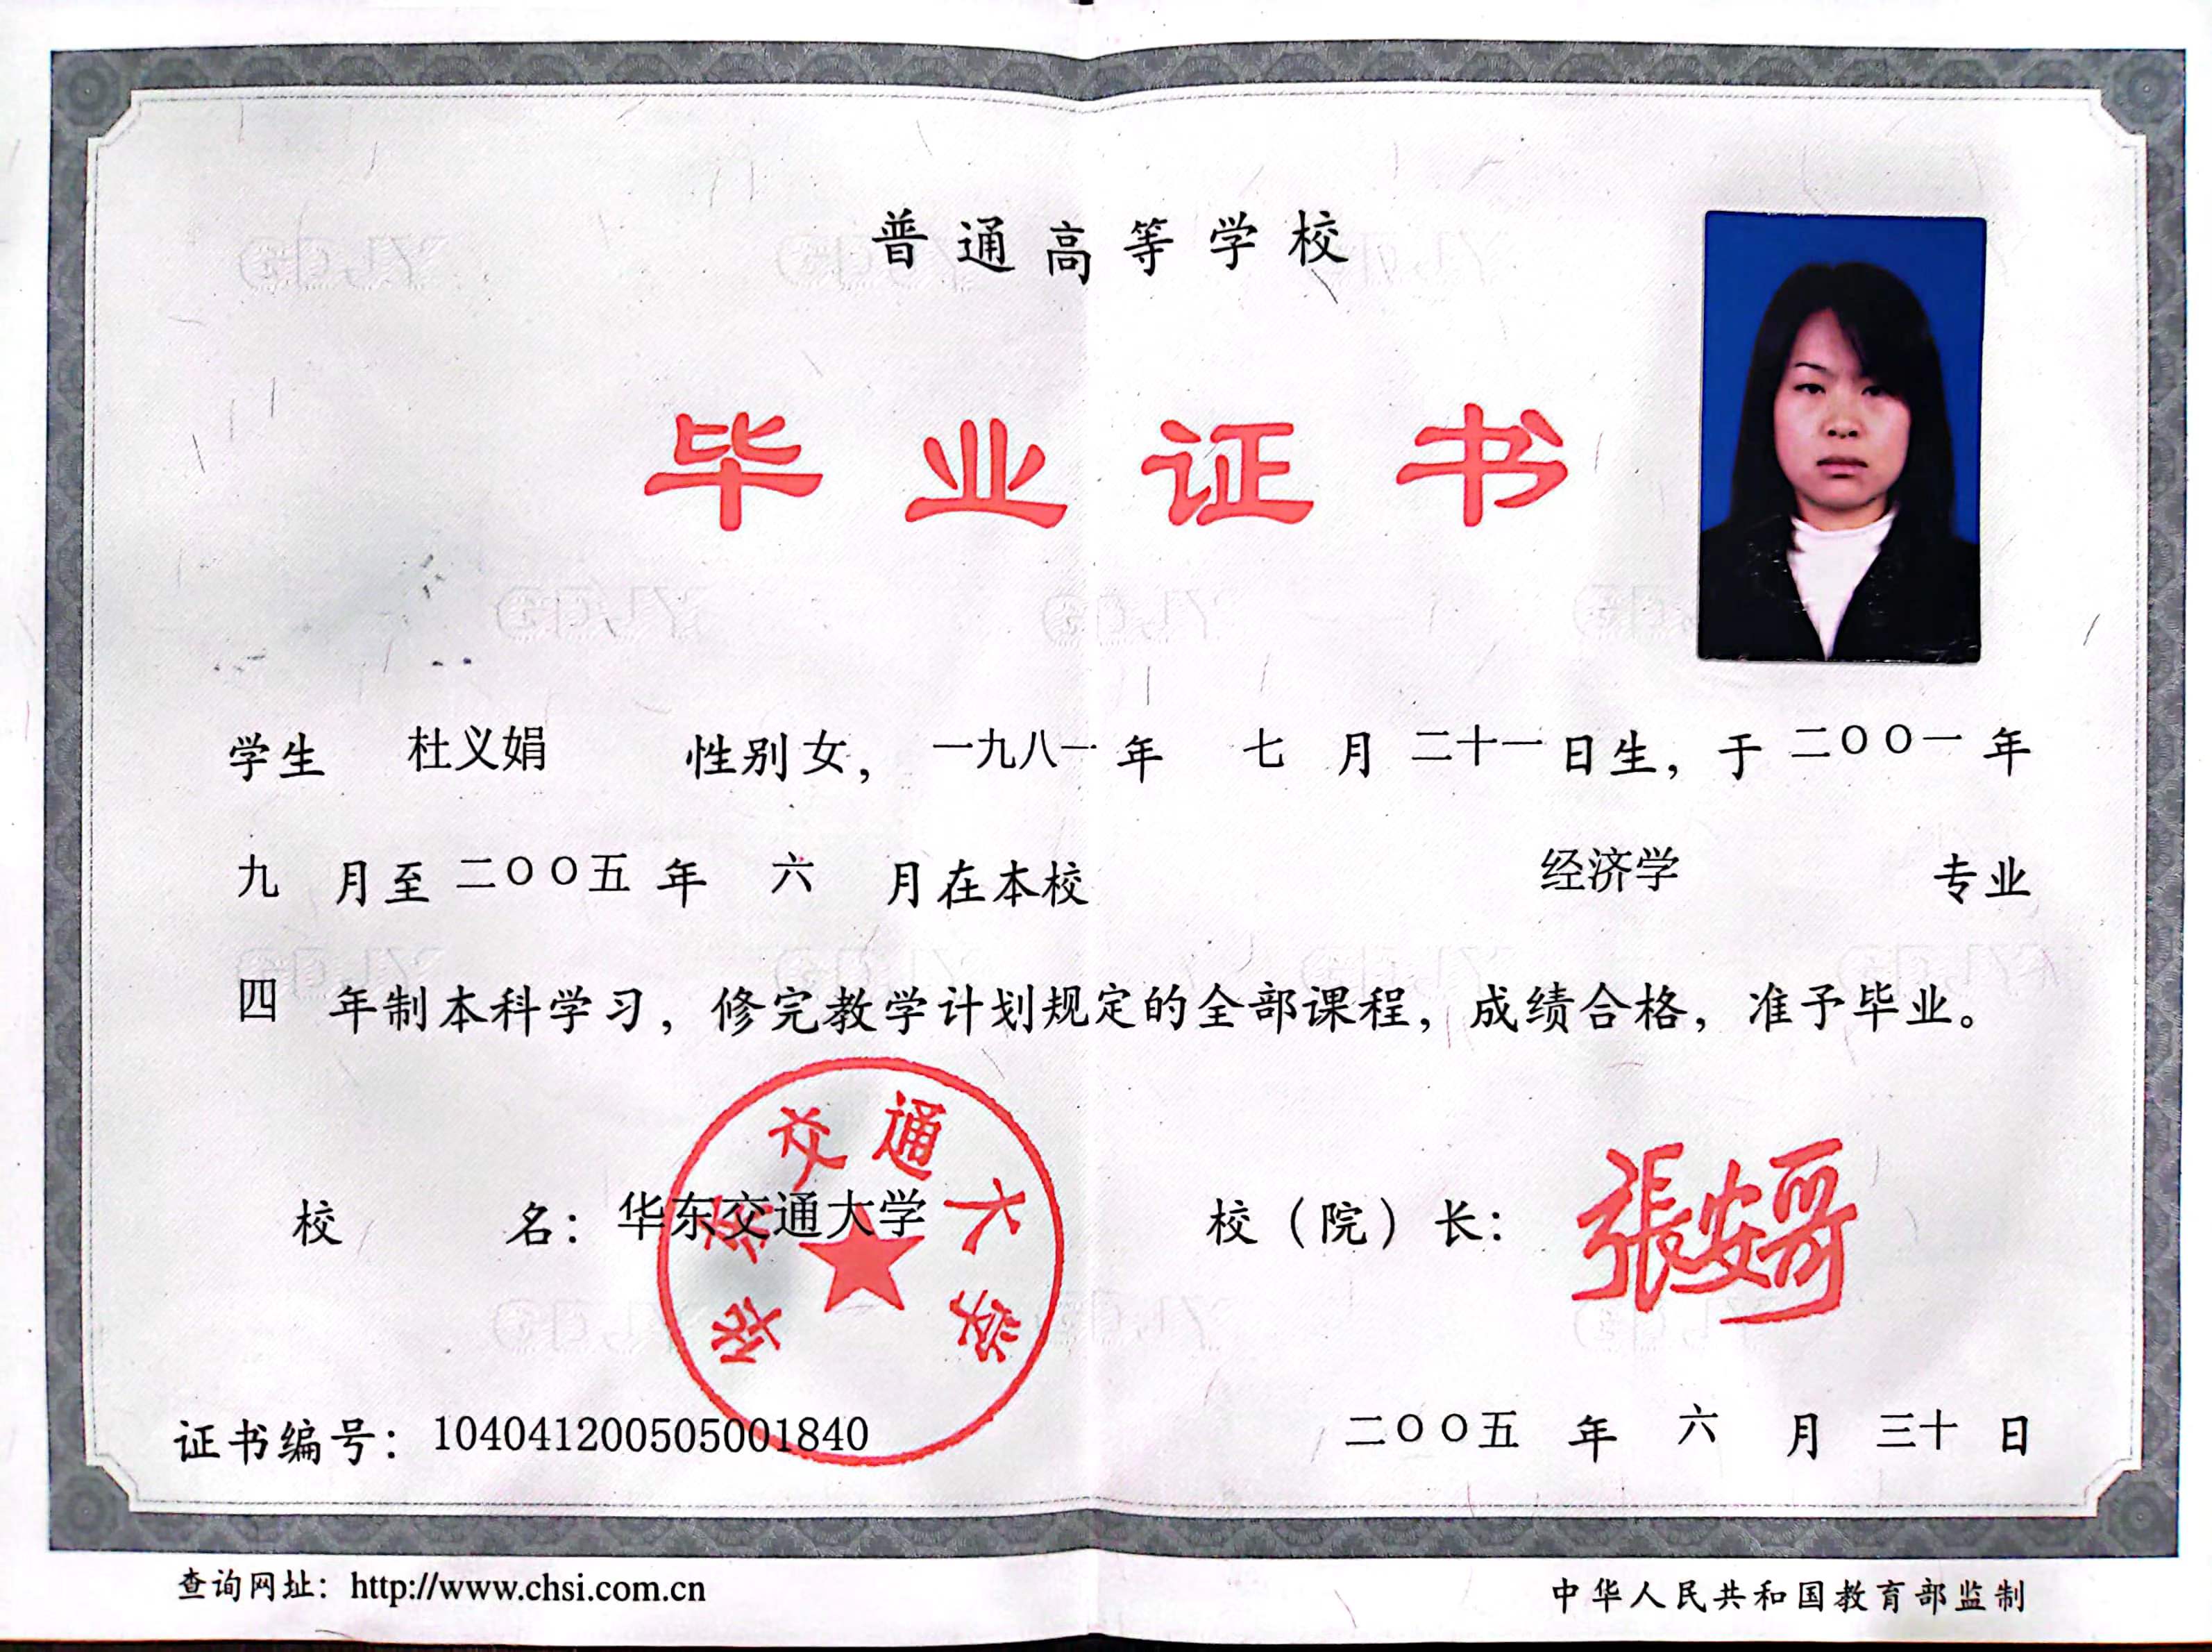 普通高等学校
毕业证书
学生 杜义娟 性别女，一九八一年 七 月 二十一日生，于 二〇〇一 年
九 月至 二〇〇五 年 六 月在本校 经济学 专业
四 年制本科学习，修完教学计划规定的全部课程，成绩合格，准予毕业。
华东交通大学
校 名：华东交通大学 校（院）长：張安哥
证书编号：104041200505001840 二〇〇五 年 六 月 三十 日
查询网址：http://www.chsi.com.cn 中华人民共和国教育部监制